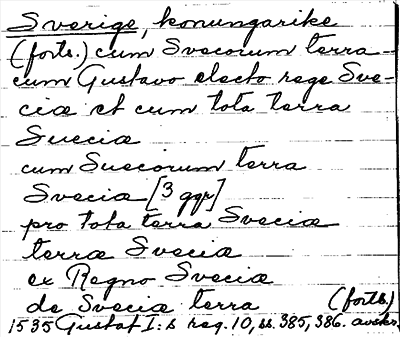 Sverige, konungarike
(forts.) cum Svecorum terra -
cum Gustavo electo rege Sve-
ciæ et cum tota terra
Sueciæ
cum Suecorum terra
Svecia [3 ggr]
pro tota terra Sveciæ
terræ Sveciæ
ex Regno Sveciæ
de Sveciæ terra (forts)
1535 Gustaf I:s reg. 10, ss. 385, 386. avskr.